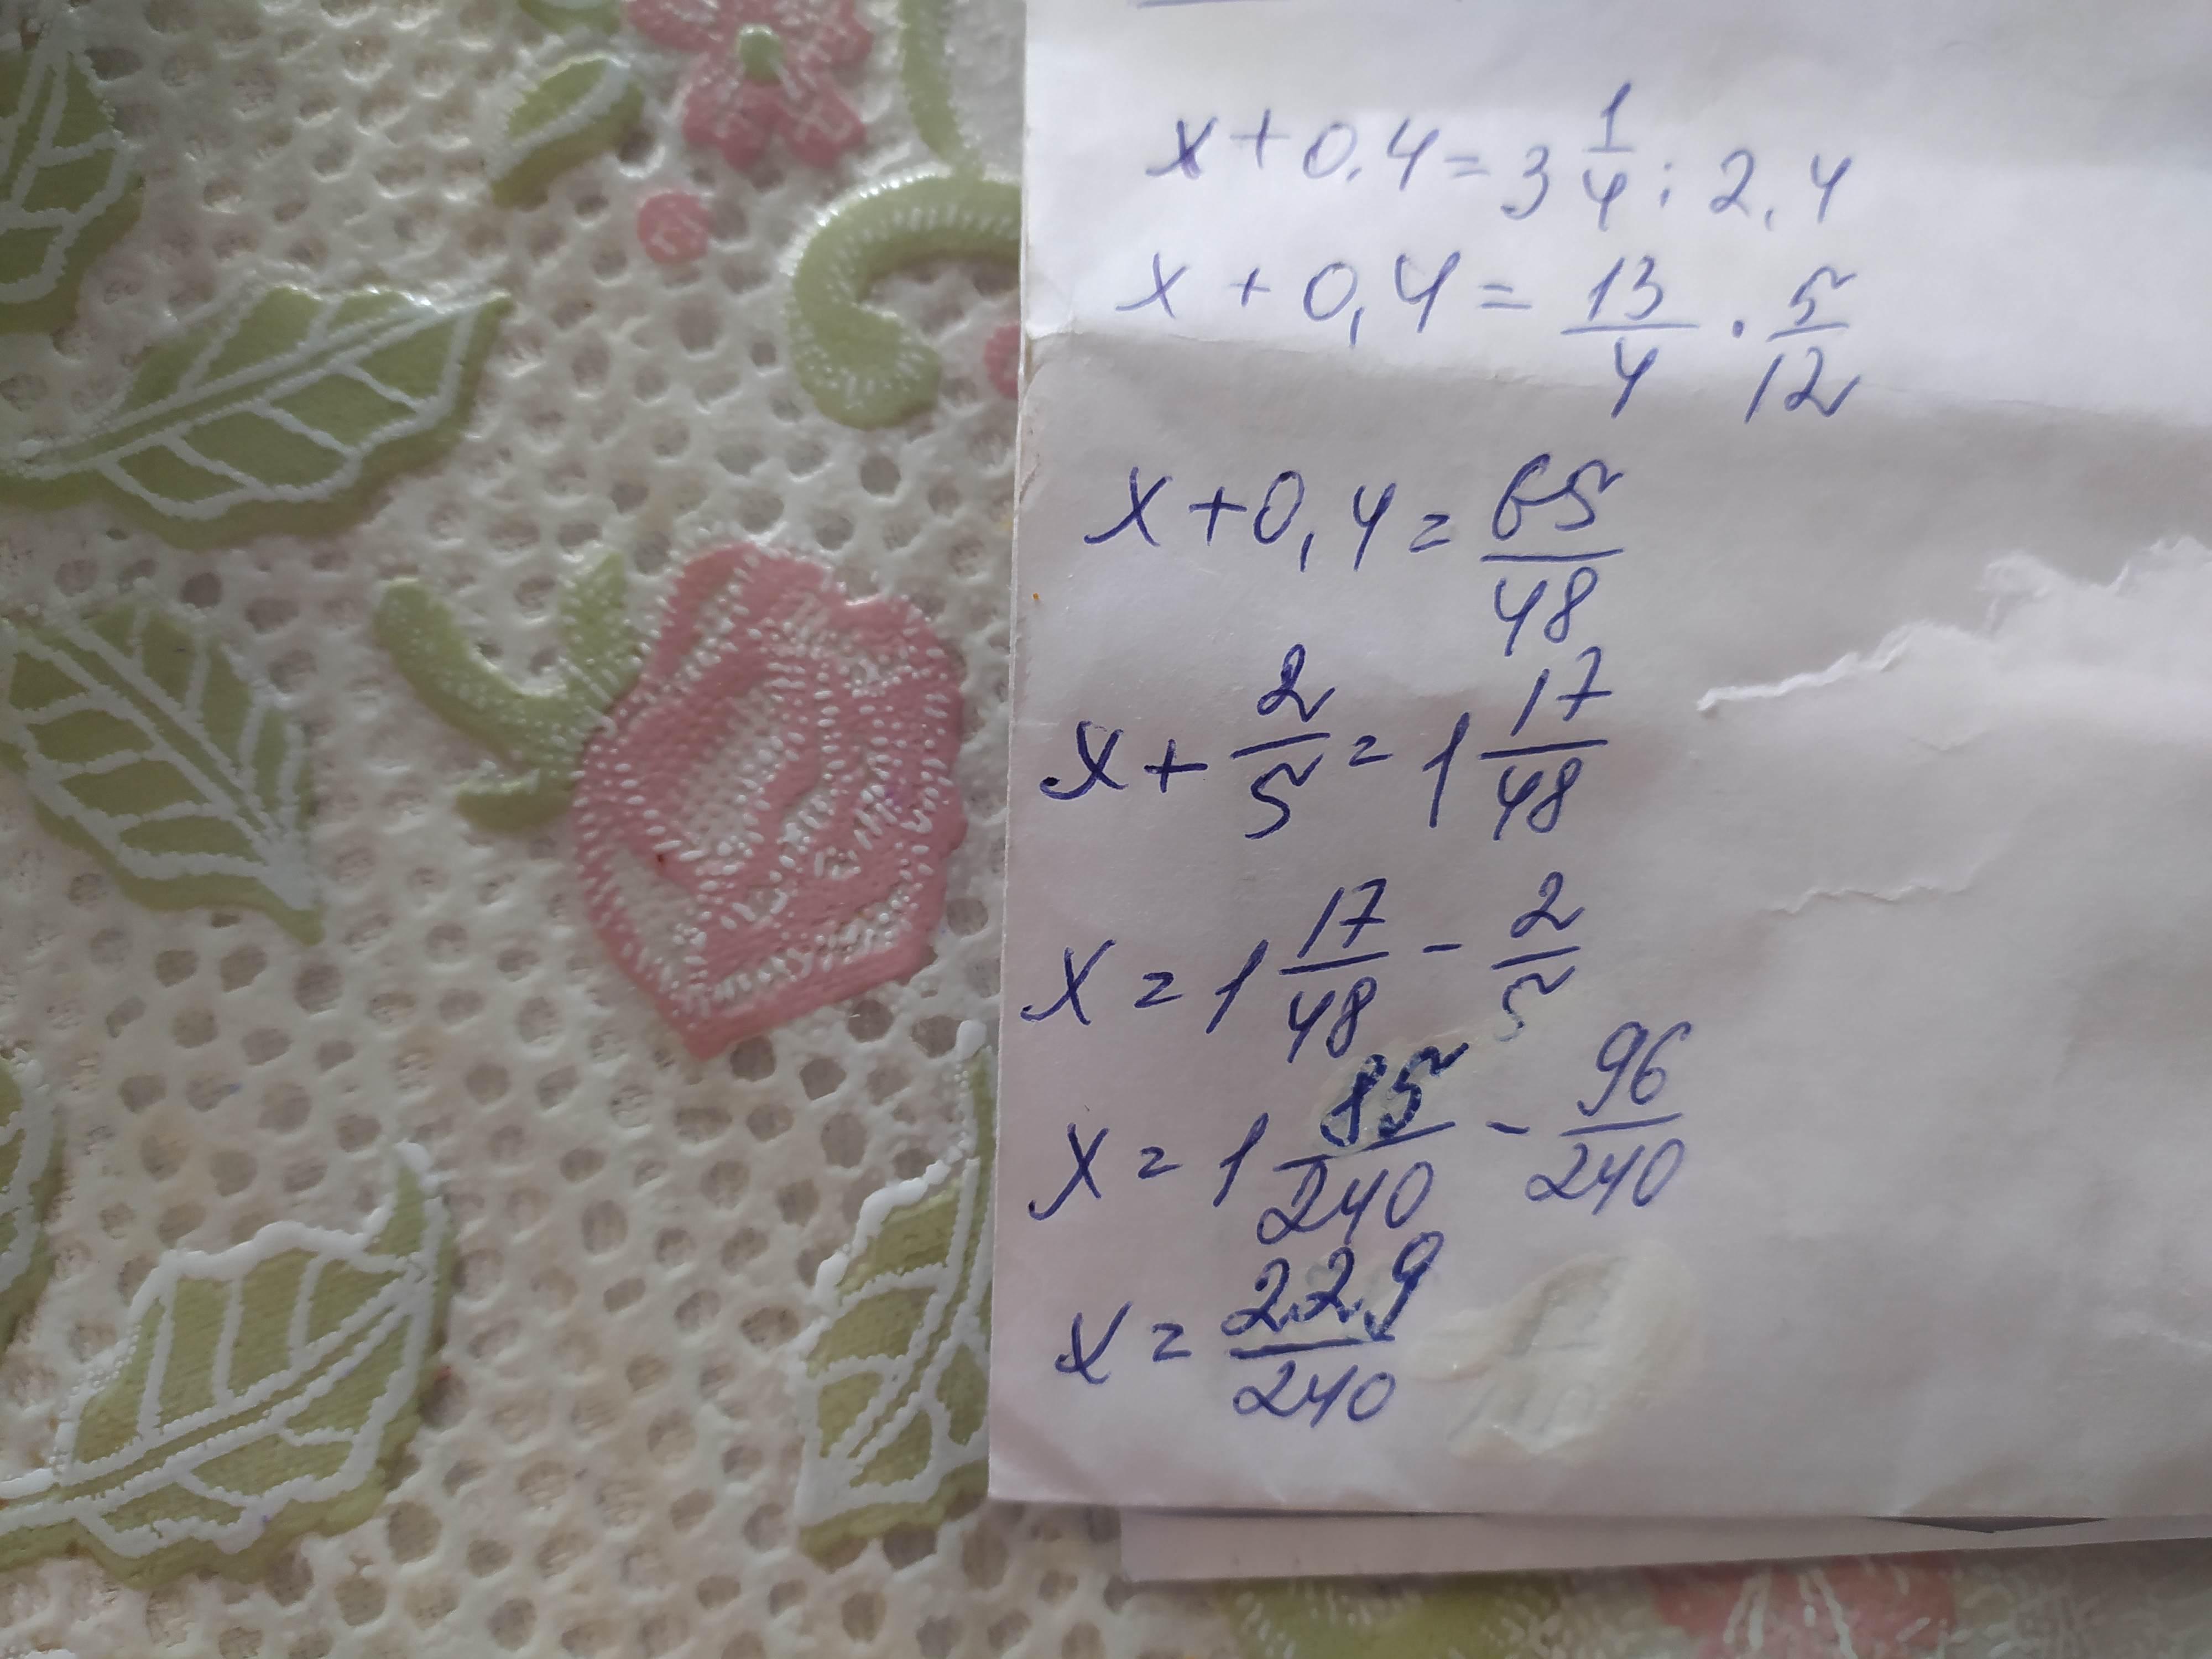 x + 0.4 = 3 1/4 : 2.4
x + 0,4 = 13/4 · 5/12
x + 0,4 = 65/48
x + 2/5 = 1 17/48
x = 1 17/48 - 2/5
x = 1 85/240 - 96/240
x = 229/240